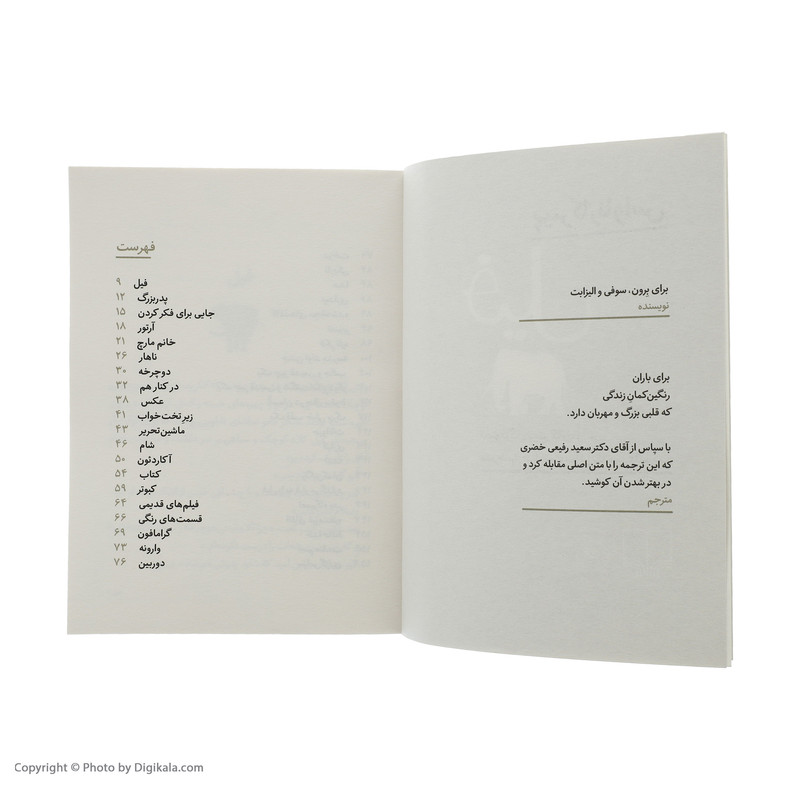 برای بِرون، سوفی و الیزابت
نویسنده
برای باران
رنگین‌کمانِ زندگی
که قلبی بزرگ و مهربان دارد.
با سپاس از آقای دکتر سعید رفیعی خضری
که این ترجمه را با متن اصلی مقابله کرد و
در بهتر شدن آن کوشید.
مترجم
فهرست
فیل ۹
پدربزرگ ۱۲
جایی برای فکر کردن ۱۵
آرتور ۱۸
خانم مارچ ۲۱
ناهار ۲۶
دوچرخه ۳۰
در کنار هم ۳۲
عکس ۳۸
زیرِ تخت‌خواب ۴۱
ماشین‌تحریر ۴۳
شام ۴۶
آکاردئون ۵۰
کتاب ۵۴
کبوتر ۵۹
فیلم‌های قدیمی ۶۴
قسمت‌های رنگی ۶۶
گرامافون ۶۹
وارونه ۷۳
دوربین ۷۶
Copyright © Photo by Digikala.com